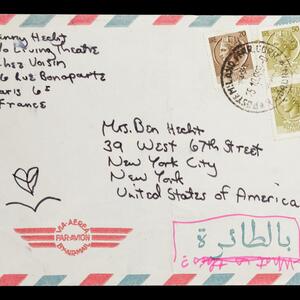 Jenny Hecht
c/o Living Theatre
Chez Voisin
6 Rue Bonaparte
Paris 6E
France
Mrs. Ben Hecht
39 West 67th Street
New York City
New York
United States of America
VIA-AEREA
PAR-AVION
BY-AIRMAIL
بالطائرة
What is this?